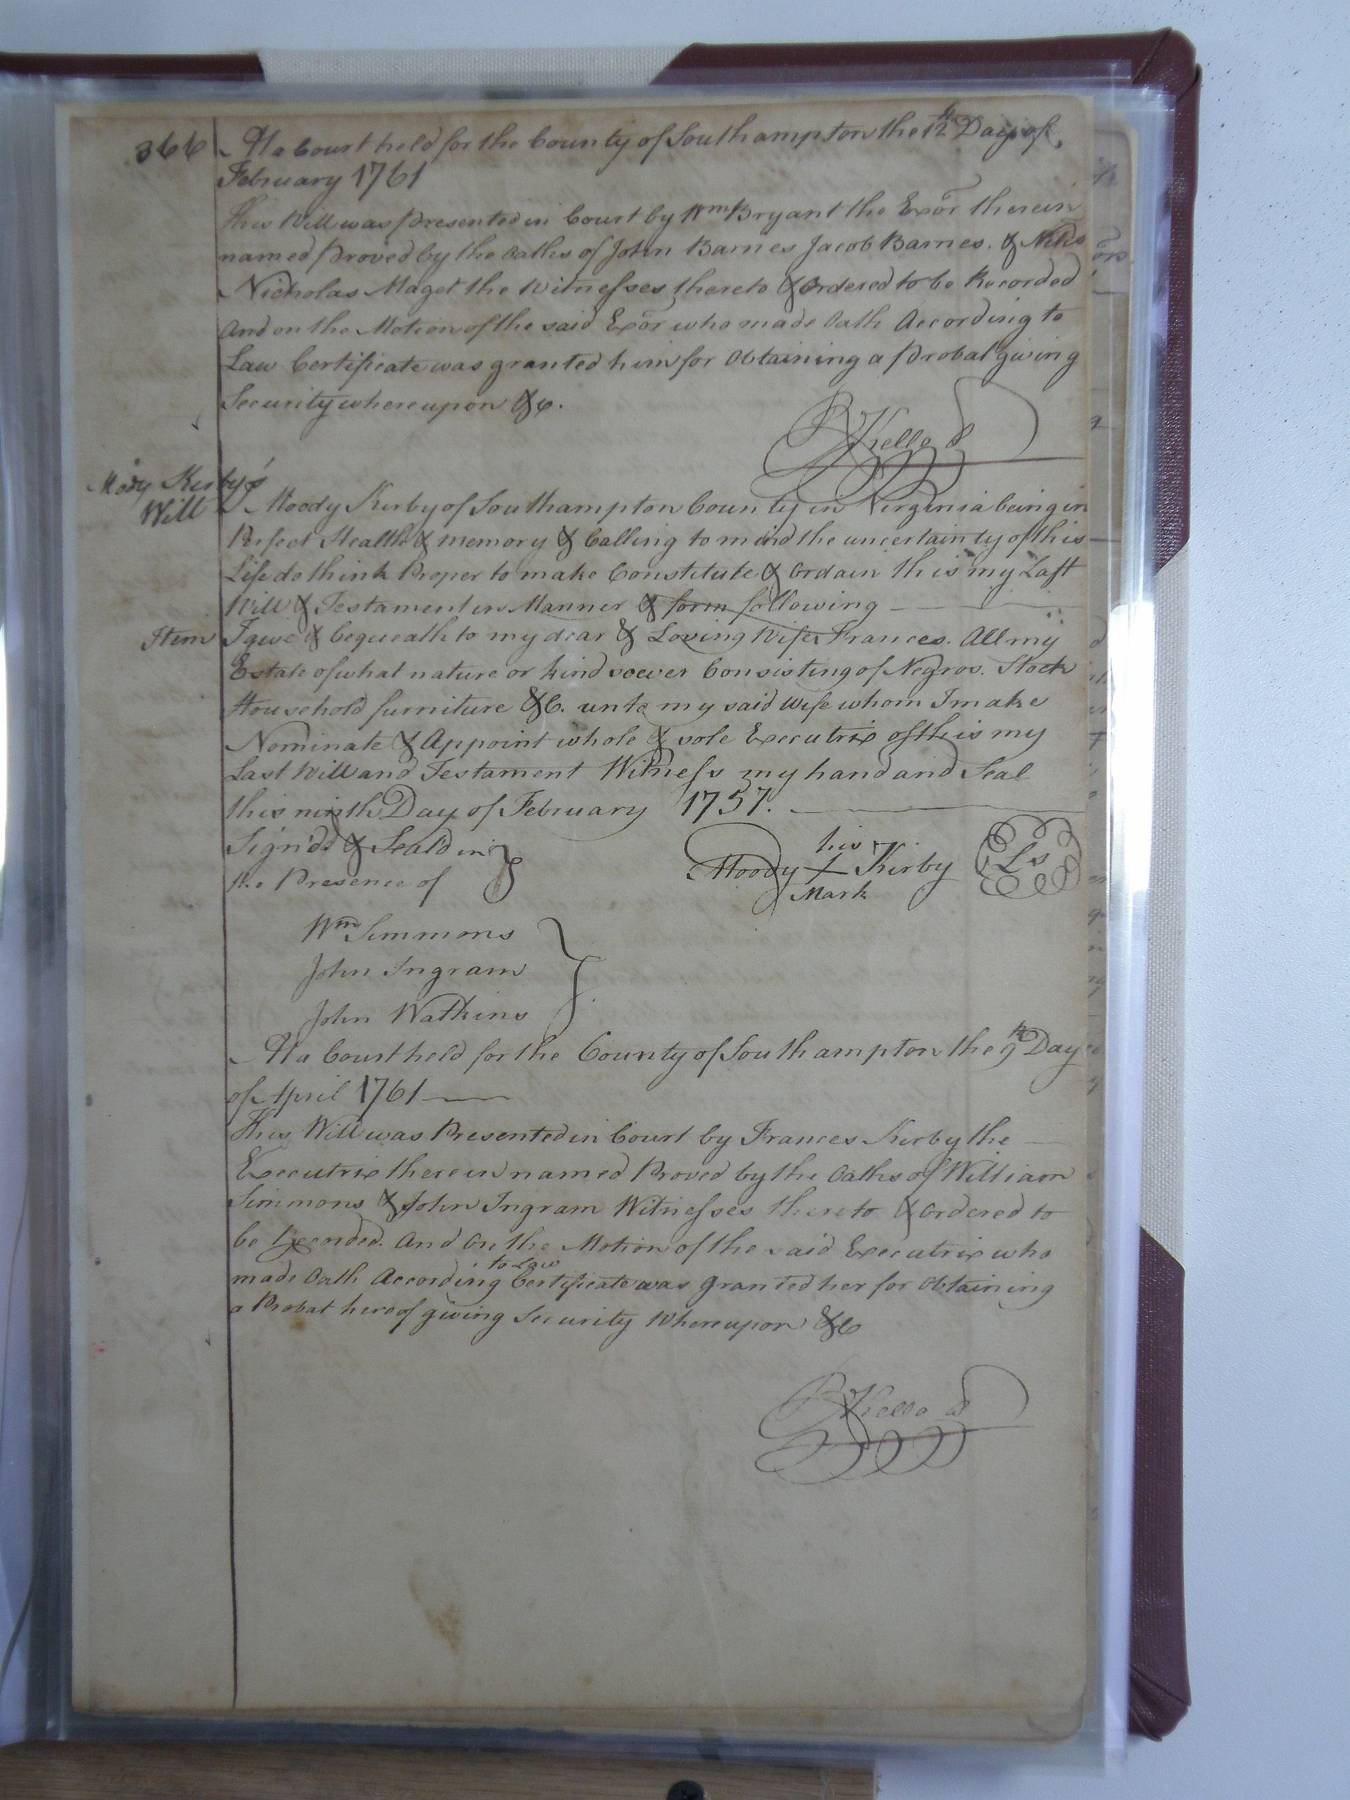 366 At a Court held for the County of Southampton the 12th Day of
February 1761
This Will was Presented in Court by Wm Bryant the Exor therein
named Proved by the Oaths of John Barnes Jacob Barnes. &
Nicholas Maget the Witnesses thereto & Ordered to be Recorded
And on the Motion of the said Exor who made Oath According to
Law Certificate was granted him for Obtaining a Probat giving
Security whereupon &c.
R Kello
Mody Kirby's
Will
I Moody Kirby of Southampton County in Virginia being in
Perfect Health & memory & Calling to mind the uncertainty of this
Life do think Proper to make Constitute & Ordain this my Last
Will & Testament in Manner & form following
Item I give & bequeath to my dear & Loving Wife Frances. All my
Estate of what nature or kind soever Consisting of Negros. Stock
Household furniture &C. unto my said Wife whom I make
Nominate & Appoint whole & sole Executrix of this my
Last Will and Testament Witness my hand and Seal
this ninth Day of February 1757.
Sign'd & Seald in
the Presence of
his
Moody + Kirby Ls
Mark
Wm Simmons
John Ingram
John Watkins
At a Court held for the County of Southampton the 9th Day
of April 1761
This Will was Presented in Court by Frances Kirby the
Executrix therein named Proved by the Oaths of William
Simmons & John Ingram Witnesses thereto & Ordered to
be Recorded. And On the Motion of the said Executrix who
made Oath According to Law Certificate was granted her for Obtaining
a Probat hereof giving Security Whereupon &C
R Kello